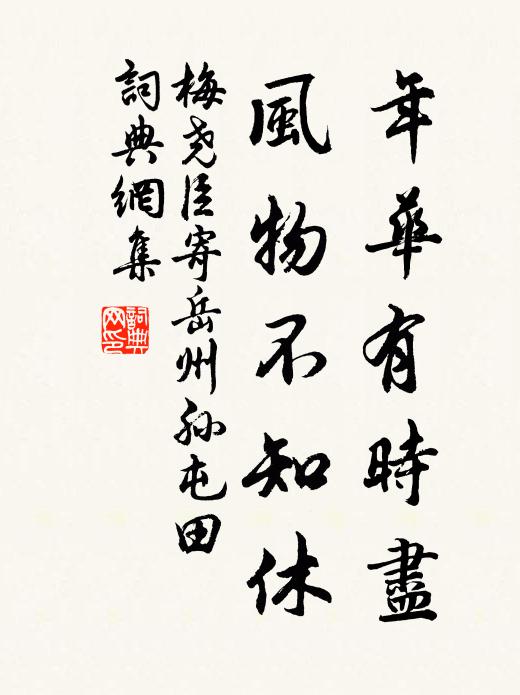 年華有時盡
風物不知休
梅尧臣寄岳州孙屯田
詞典網集
詞典网印